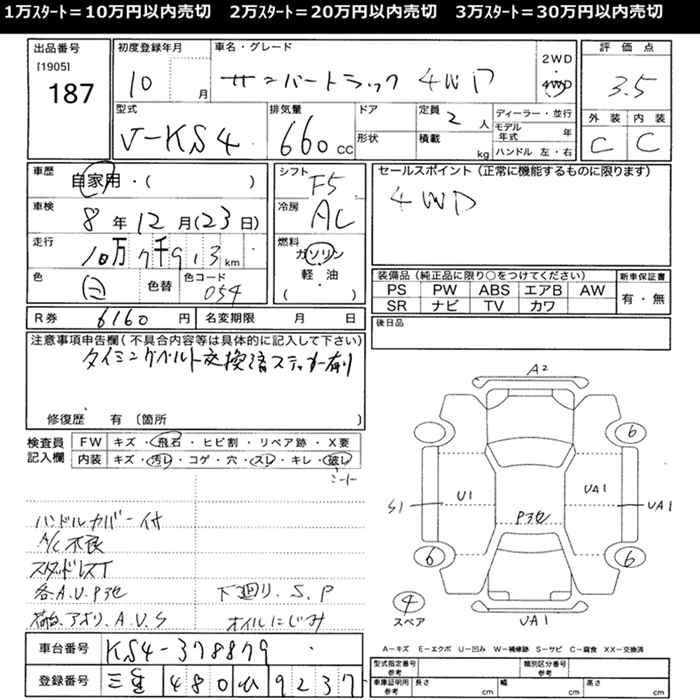 1万ｽﾀｰﾄ＝10万円以内売切　2万ｽﾀｰﾄ＝20万円以内売切　3万ｽﾀｰﾄ＝30万円以内売切
出品番号
[1905]
187
初度登録年月
10 月
車名・グレード
サンバートラック 4WD
2WD
4WD
評価点
3.5
外装 内装
C C
型式
V-KS4
排気量
660 CC
ドア
形状
定員
2 人
積載
kg
ディーラー・並行
モデル年式 年
ハンドル 左・右
車歴
自家用・( )
車検
8 年 12 月(23日)
走行
10万7千913 km
色
白
色替
色コード
054
シフト
F5
冷房
AC
燃料
ガソリン
軽・油
( )
セールスポイント（正常に機能するものに限ります）
4WD
装備品（純正品に限り○をつけてください）
PS PW ABS エアB AW
SR ナビ TV カワ
新車保証書
有・無
後日品
R券 6160 円 名変期限 月 日
注意事項申告欄（不具合内容等は具体的に記入して下さい）
タイミングベルト交換済ステッカー有り
修復歴 有〔箇所 〕
検査員記入欄
FW キズ・飛石・ヒビ割・リペア跡・X要
内装 キズ・汚れ・コゲ・穴・スレ・キレ・破れ
シート
ハンドルカバー付
A/C不良
スタッドレスT
各A.U.Pヲ他
下廻り.S.P
荷台.アオリ.A.U.S
オイルにじみ
車台番号 KS4-378879
登録番号 三重 480 ひ 9237
A2
6
S1
U1
UA1
UA1
Pヲ他
6
6
4
スペア
UA1
A－キズ E－エクボ U－凹み W－補修跡 S－サビ C－腐食 XX－交換済
型式指定番号
参考
類別区分番号
参考
車庫証明用
参考
長さ cm
幅 cm
高さ cm